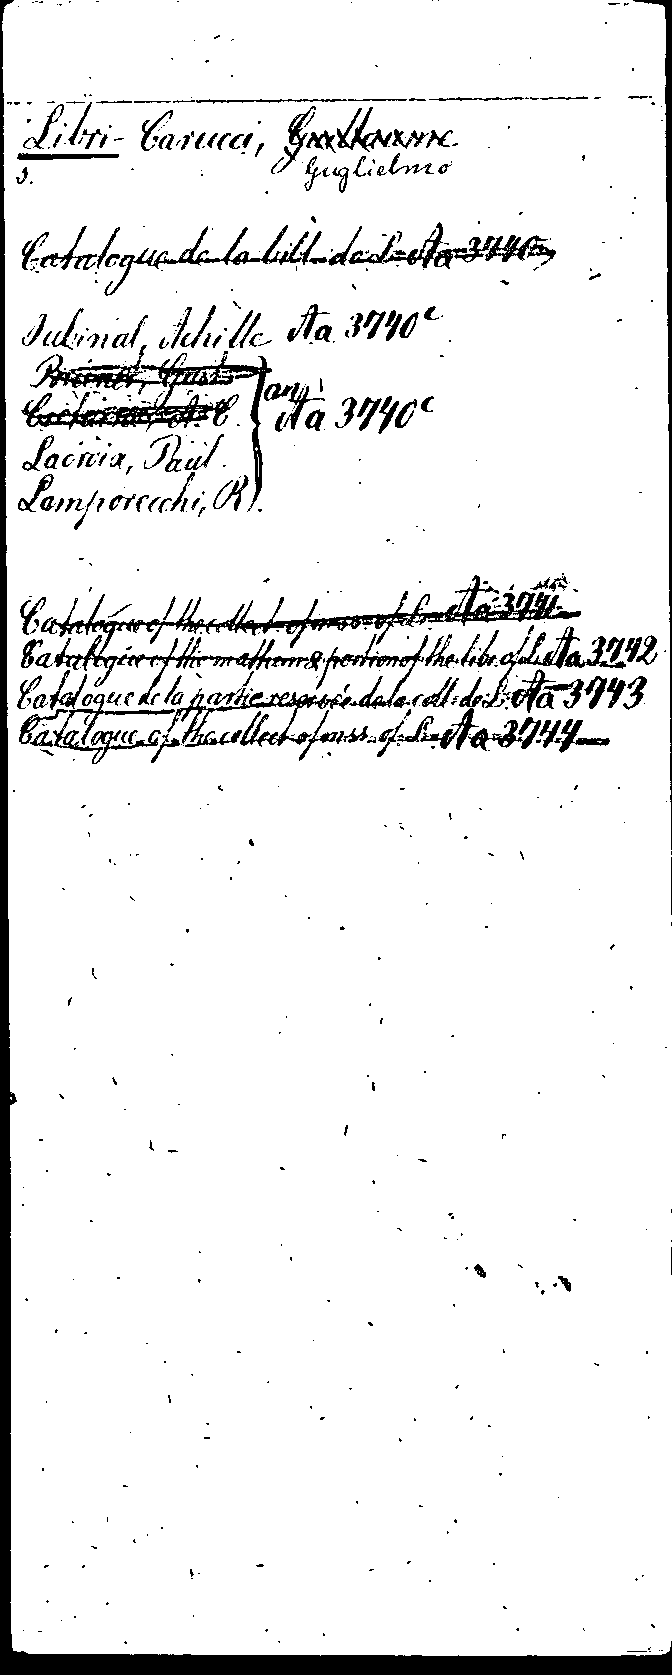 Libri-Carucci, Guillaume
s. Guglielmo
Catalogue de la bibl. de L. Aa 3740
Jubinal, Achille Aa 3740c
Brunet, Gust.
an
A. C. Aa 3740c
Lacroix, Paul
Lamporecchi, R.
Catalogue of the collect. of mss. of L. Aa 3741
Catalogue of the mathem. & portion of the libr. of L. Aa 3742
Catalogue de la partie reservée de la coll. de L. Aa 3743
Catalogue of the collect. of mss. of L. Aa 3744